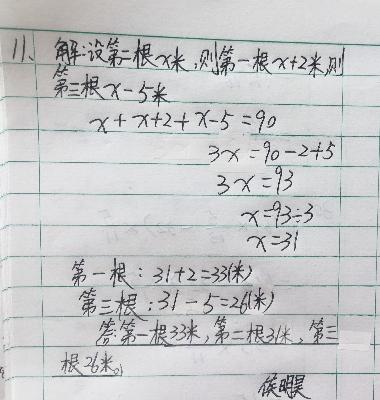 11、解:设第二根x米,则第一根x+2米,则
第三根x-5米
x+x+2+x-5=90
3x=90-2+5
3x=93
x=93÷3
x=31
第一根:31+2=33(米)
第三根:31-5=26(米)
答:第一根33米,第二根31米,第三
根26米。